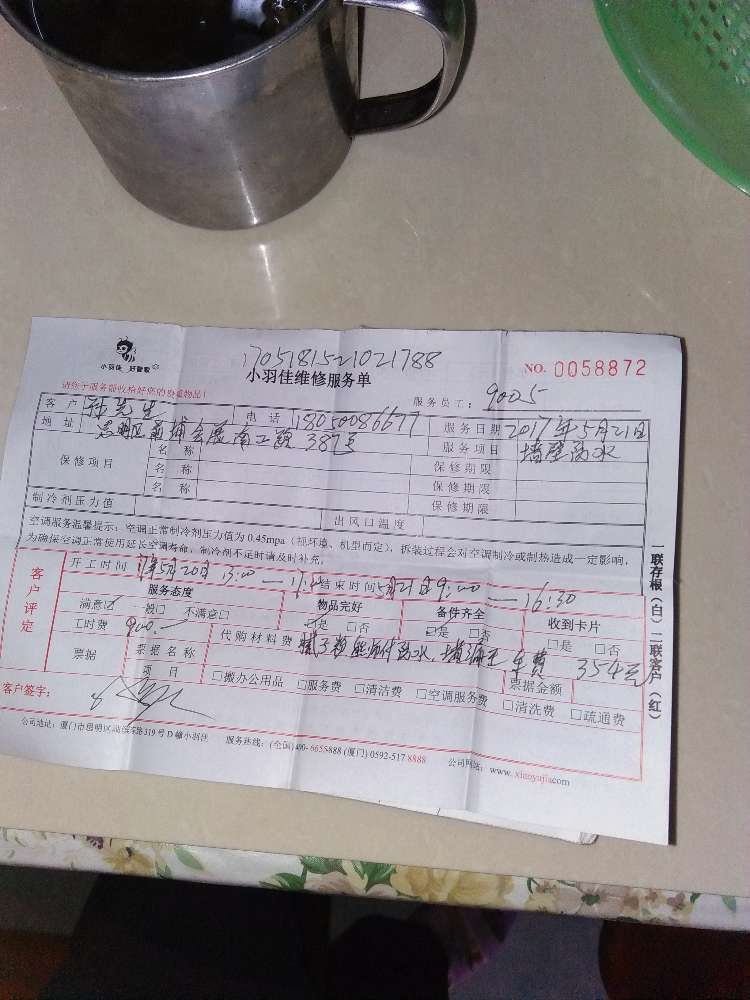 小羽佳 好管家
1705181521021788
小羽佳维修服务单
NO. 0058872
请您于服务前收拾好您的贵重物品！
服务员工：9005
客户 先生 电话 18050086677 服务日期 2017年5月21日
地址 思明区前埔会展南二路387号 服务项目 墙壁防水
保修项目 名称 保修期限
名称 保修期限
名称 保修期限
制冷剂压力值 出风口温度
空调服务温馨提示：空调正常制冷剂压力值为0.45mpa（视环境、机型而定），拆装过程会对空调制冷或制热造成一定影响，
为确保空调正常使用延长空调寿命，制冷剂不足时请及时补充。
开工时间 5月20日 13:00 结束时间 21日9:00 — 16:30
客户评定
服务态度 物品完好 备件齐全 收到卡片
满意☑ 一般□ 不满意□ 是 □否 是 □否 □是 □否
工时费 900.— 代购材料费 车费 354元
票据 票据名称 票据金额
项目 □搬办公用品 □服务费 □清洁费 □空调服务费 □清洗费 □疏通费
客户签字：
公司地址：厦门市思明区 319号D幢小羽佳 服务热线：(全国)400-6655888 (厦门) 0592-517 8888 公司网站：www.xiaoyujia.com
一联存根（白）二联客户（红）